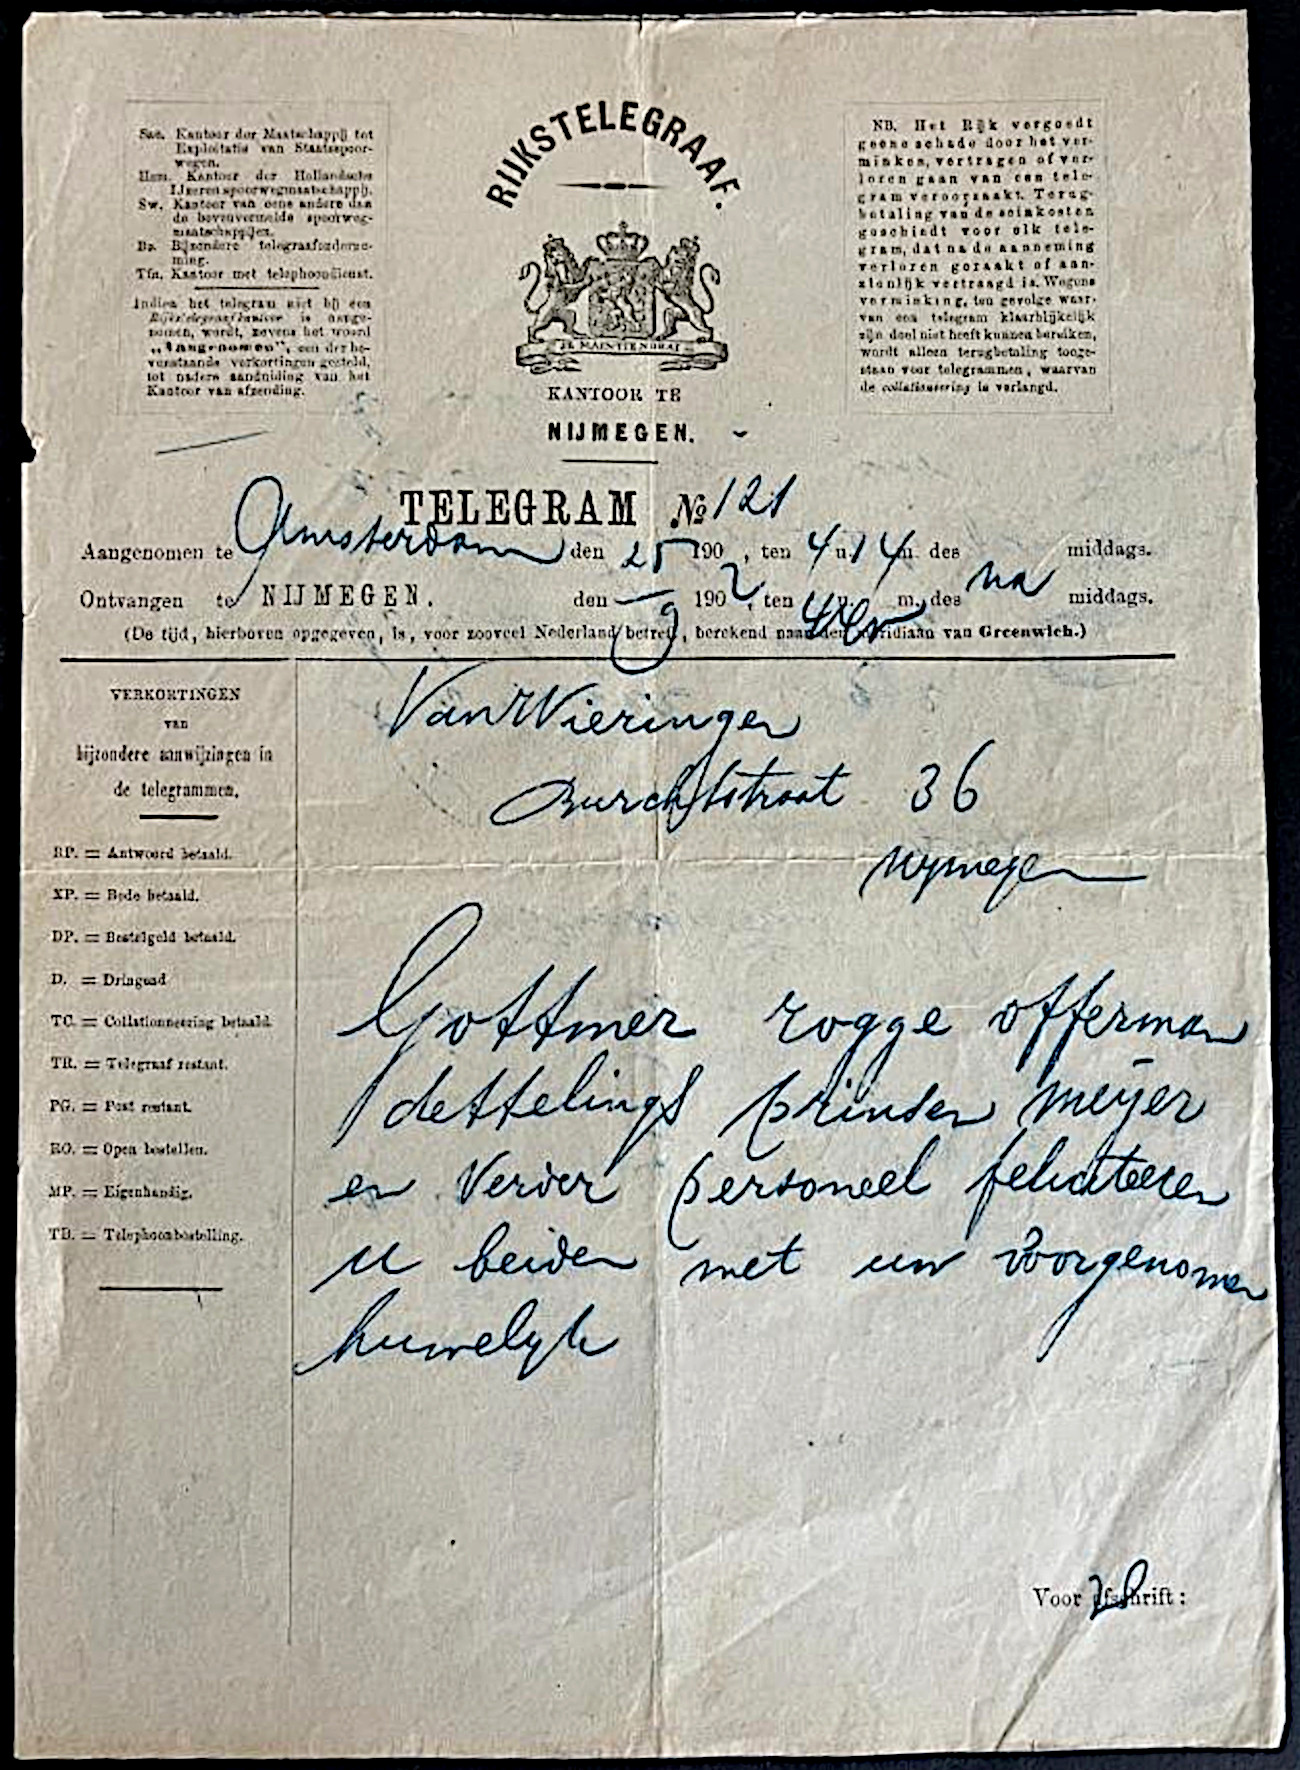 Sae. Kantoor der Maatschappij tot
Exploitatie van Staatsspoor-
wegen.
Hsm. Kantoor der Hollandsche
IJzeren spoorwegmaatschappij.
Sw. Kantoor van eene andere dan
de bovenvermelde spoorweg-
maatschappijen.
Bz. Bijzondere telegraafonderne-
ming.
Tfn. Kantoor met telephoondienst.
Indien het telegram niet bij een
Rijkstelegraafkantoor is aange-
nomen, wordt, nevens het woord
„Aangenomen", een der bo-
venstaande verkortingen gesteld,
tot nadere aanduiding van het
Kantoor van afzending.
RIJKSTELEGRAAF.
JE MAINTIENDRAI
KANTOOR TE
NIJMEGEN.
NB. Het Rijk vergoedt
geene schade door het ver-
minken, vertragen of ver-
loren gaan van een tele-
gram veroorzaakt. Terug-
betaling van de seinkosten
geschiedt voor elk tele-
gram, dat na de aanneming
verloren geraakt of aan-
zienlijk vertraagd is. Wegens
verminking, ten gevolge waar-
van een telegram klaarblijkelijk
zijn doel niet heeft kunnen bereiken,
wordt alleen terugbetaling toege-
staan voor telegrammen, waarvan
de collationneering is verlangd.
TELEGRAM No 121
Aangenomen te Amsterdam den 25 190 , ten 4 u. 14 m. des middags.
Ontvangen te NIJMEGEN. den 9 1902, ten u. m. des na middags.
(De tijd, hierboven opgegeven, is, voor zooveel Nederland betreft, berekend naar den meridiaan van Greenwich.)
VERKORTINGEN
van
bijzondere aanwijzingen in
de telegrammen.
RP. = Antwoord betaald.
XP. = Bode betaald.
DP. = Bestelgeld betaald.
D. = Dringend
TC. = Collationneering betaald.
TR. = Telegraaf restant.
PG. = Post restant.
RO. = Open bestellen.
MP. = Eigenhandig.
TB. = Telephoonbestelling.
Van Wieringen
Burchtstraat 36
Nijmegen
Gottmer rogge offerman
dettelings prinsen meijer
en verder personeel feliciteeren
u beiden met uw voorgenomen
huwelijk
Voor afschrift: